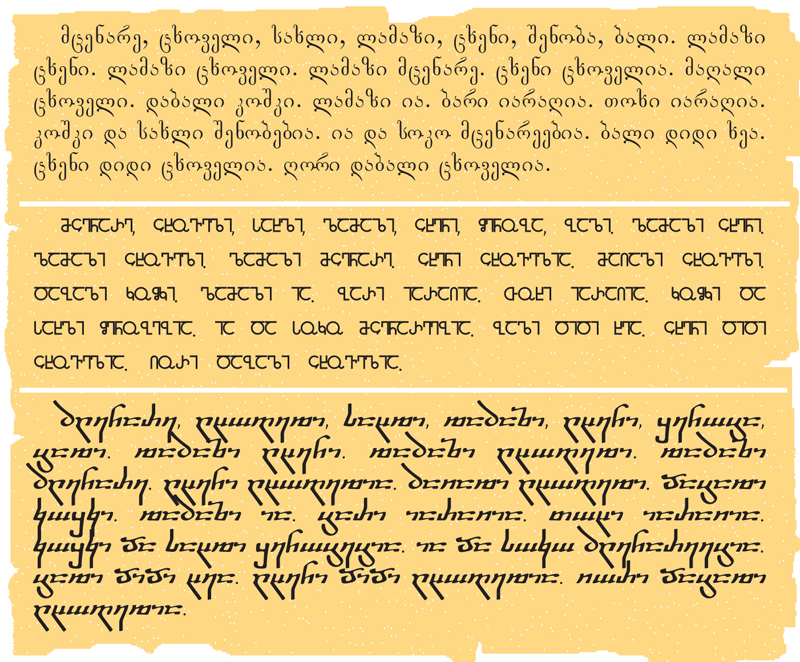 მცენარე, ცხოველი, სახლი, ლამაზი, ცხენი, შენობა, ბალი. ლამაზი
ცხენი. ლამაზი ცხოველი. ლამაზი მცენარე. ცხენი ცხოველია. მაღალი
ცხოველი. დაბალი კოშკი. ლამაზი ია. ბარი იარაღია. თოხი იარაღია.
კოშკი და სახლი შენობებია. ია და სოკო მცენარეებია. ბალი დიდი ხეა.
ცხენი დიდი ცხოველია. ღორი დაბალი ცხოველია.
ႫႺႤႬႠႰႤ, ႺႾႭႥႤႪႨ, ႱႠႾႪႨ, ႪႠႫႠႦႨ, ႺႾႤႬႨ, ႸႤႬႭႡႠ, ႡႠႪႨ. ႪႠႫႠႦႨ ႺႾႤႬႨ.
ႪႠႫႠႦႨ ႺႾႭႥႤႪႨ. ႪႠႫႠႦႨ ႫႺႤႬႠႰႤ. ႺႾႤႬႨ ႺႾႭႥႤႪႨႠ. ႫႠႶႠႪႨ ႺႾႭႥႤႪႨ.
ႣႠႡႠႪႨ ႩႭႸႩႨ. ႪႠႫႠႦႨ ႨႠ. ႡႠႰႨ ႨႠႰႠႶႨႠ. ႧႭႾႨ ႨႠႰႠႶႨႠ. ႩႭႸႩႨ ႣႠ
ႱႠႾႪႨ ႸႤႬႭႡႤႡႨႠ. ႨႠ ႣႠ ႱႭႩႭ ႫႺႤႬႠႰႤႤႡႨႠ. ႡႠႪႨ ႣႨႣႨ ႾႤႠ. ႺႾႤႬႨ ႣႨႣႨ
ႺႾႭႥႤႪႨႠ. ႶႭႰႨ ႣႠႡႠႪႨ ႺႾႭႥႤႪႨႠ.
ⴋⴚⴄⴌⴀⴐⴄ, ⴚⴞⴍⴅⴄⴊⴈ, ⴑⴀⴞⴊⴈ, ⴊⴀⴋⴀⴆⴈ, ⴚⴞⴄⴌⴈ, ⴘⴄⴌⴍⴁⴀ,
ⴁⴀⴊⴈ. ⴊⴀⴋⴀⴆⴈ ⴚⴞⴄⴌⴈ. ⴊⴀⴋⴀⴆⴈ ⴚⴞⴍⴅⴄⴊⴈ. ⴊⴀⴋⴀⴆⴈ
ⴋⴚⴄⴌⴀⴐⴄ. ⴚⴞⴄⴌⴈ ⴚⴞⴍⴅⴄⴊⴈⴀ. ⴋⴀⴖⴀⴊⴈ ⴚⴞⴍⴅⴄⴊⴈ. ⴃⴀⴁⴀⴊⴈ
ⴉⴍⴘⴉⴈ. ⴊⴀⴋⴀⴆⴈ ⴈⴀ. ⴁⴀⴐⴈ ⴈⴀⴐⴀⴖⴈⴀ. ⴇⴍⴞⴈ ⴈⴀⴐⴀⴖⴈⴀ.
ⴉⴍⴘⴉⴈ ⴃⴀ ⴑⴀⴞⴊⴈ ⴘⴄⴌⴍⴁⴄⴁⴈⴀ. ⴈⴀ ⴃⴀ ⴑⴍⴉⴍ ⴋⴚⴄⴌⴀⴐⴄⴄⴁⴈⴀ.
ⴁⴀⴊⴈ ⴃⴈⴃⴈ ⴞⴄⴀ. ⴚⴞⴄⴌⴈ ⴃⴈⴃⴈ ⴚⴞⴍⴅⴄⴊⴈⴀ. ⴖⴍⴐⴈ ⴃⴀⴁⴀⴊⴈ
ⴚⴞⴍⴅⴄⴊⴈⴀ.